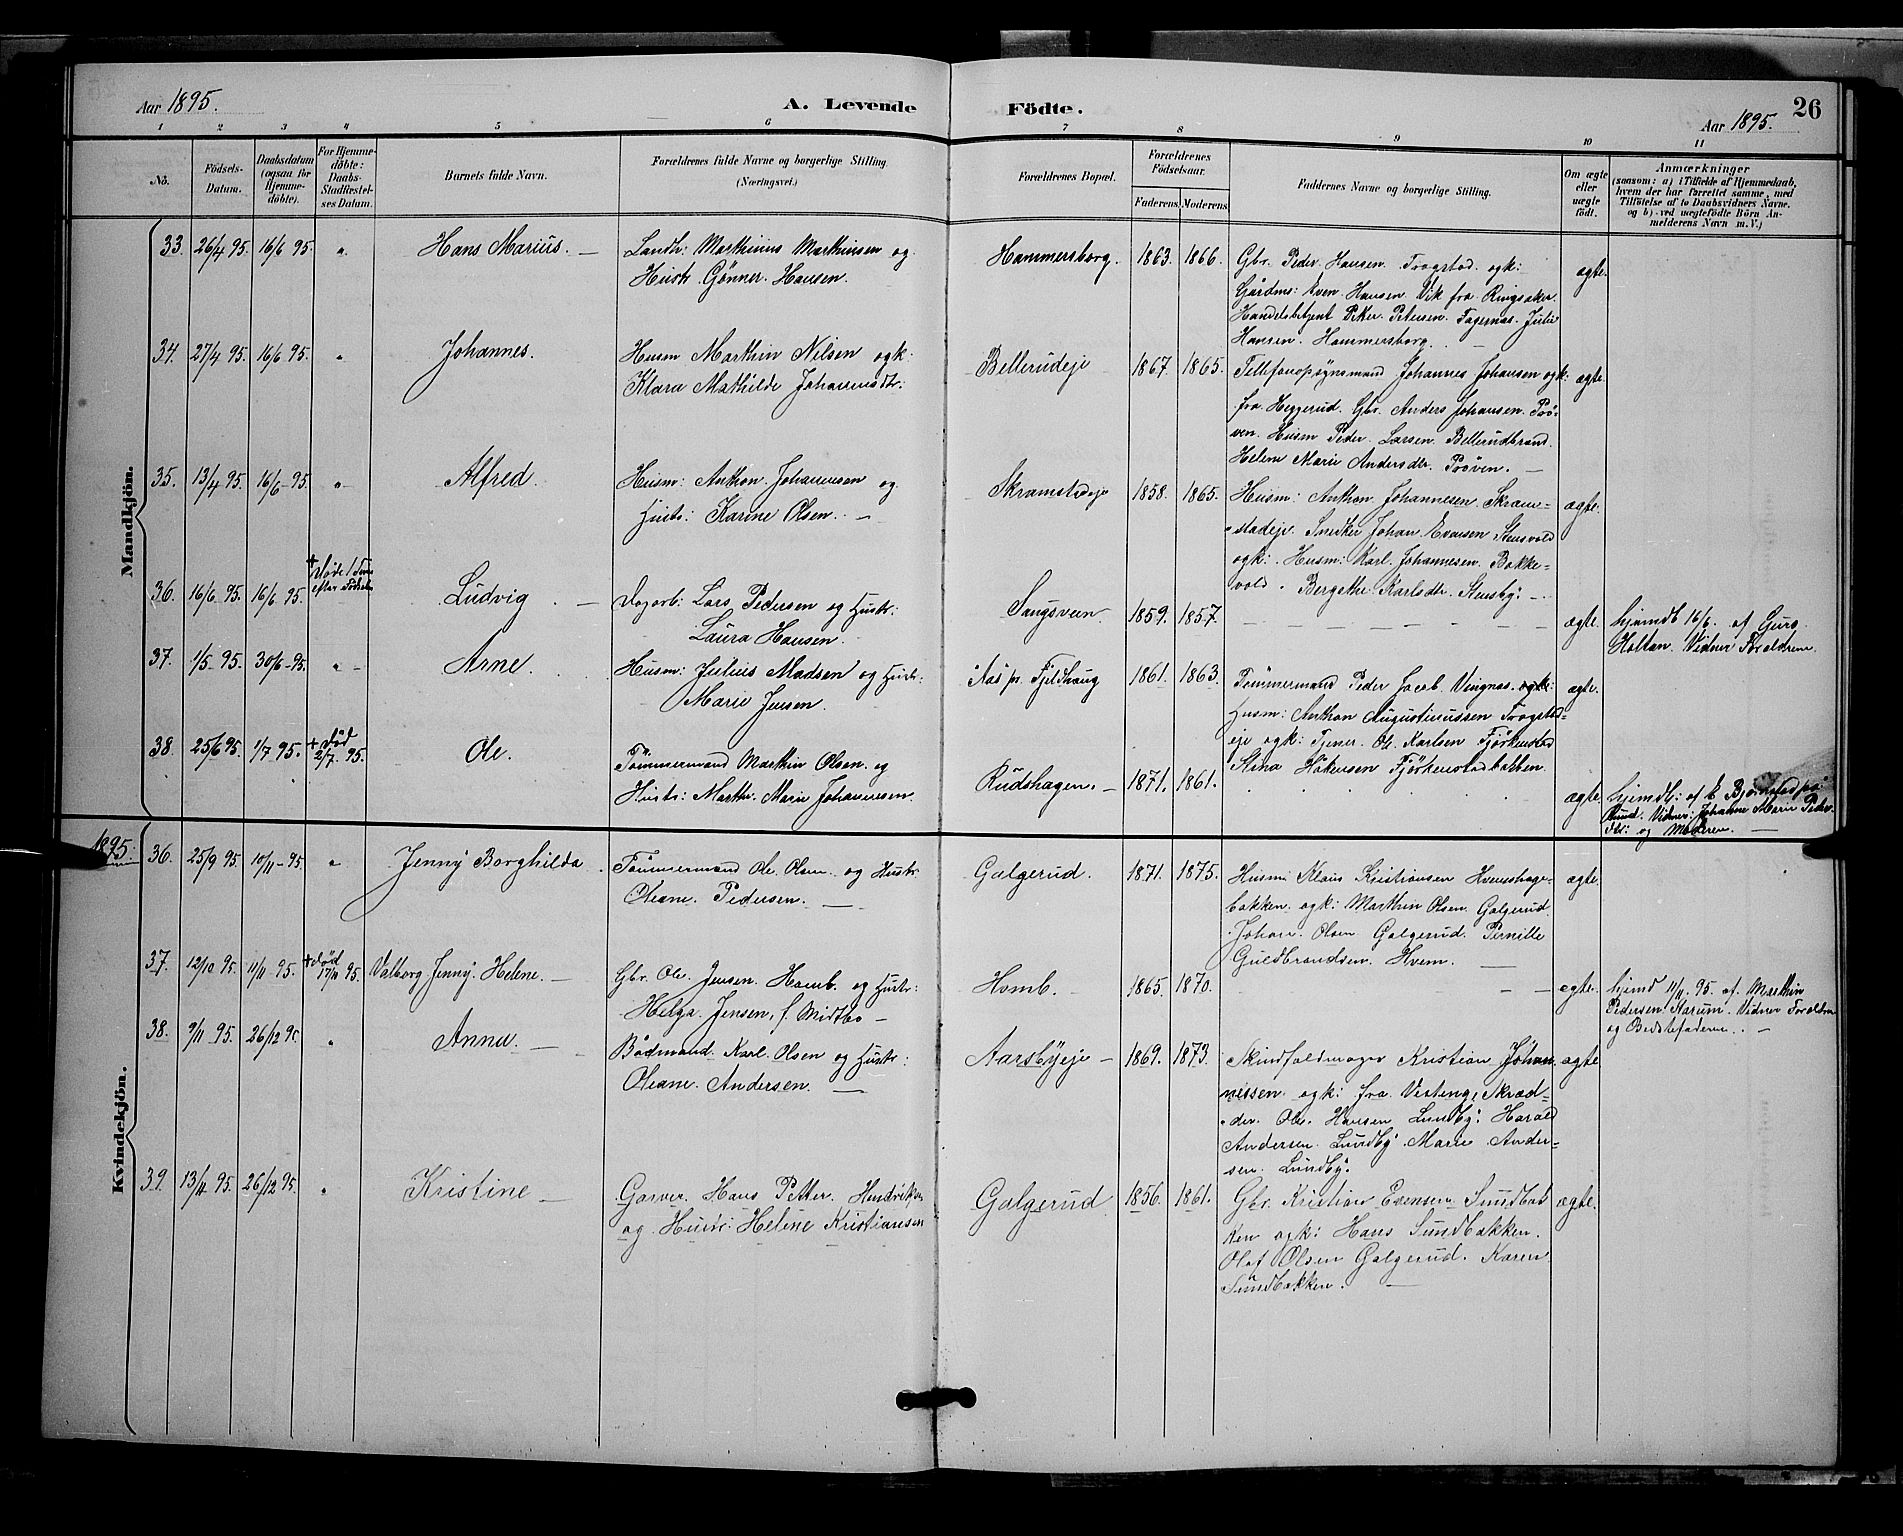 Aar 1895. A. Levende Födte. 26
Aar 1895.
1 2 3 4 5 6 7 8 9 10 11
No.
Födsels-
Datum.
Daabsdatum
(ogsaa for
Hjemme-
döbte).
For Hjemme-
döbte:
Daabs-
Stadfæstel-
ses Datum.
Barnets fulde Navn.
Forældrenes fulde Navne og borgerlige Stilling.
(Næringsvei.)
Forældrenes Bopæl.
Forældrenes
Födselsaar.
Faderens. Moderens.
Faddernes Navne og borgerlige Stilling.
Om ægte
eller
uægte
födt.
Anmærkninger
(saasom: a) i Tilfælde af Hjemmedaab,
hvem der har forrettet samme, med
Tilföielse af to Daabsvidners Navne.
og b) ved uægtefödte Börn An-
melderens Navn m. V.)
Mandkjön.
33. 26/4 95. 16/6 95. " Hans Marius. —
Landh: Marthinius Marthinsen og
Hustr Gönner Hansen.
Hammersborg. 1863. 1866.
Gbr. Peder Hansen. Trogstad. ogk:
Gårdms: Even Hansen Vik fra Ringsaker.
Handelsbetjent Peter Petersen. Fagernæs. Julie
Hansen. Hammersborg.
ægte.
34. 27/4 95. 16/6 95. " Johannes.
Husm Marthin Nilsen ogk:
Klara Mathilde Johannesdtr:
Bellerudeje 1867. 1865.
Tellefonopsynsmand Johannes Johansen ogk:
fra Heggerud. Gbr. Anders Johansen. Prö-
ven. Husm Peder Larsen. Bellerudbrænd.
Helene Marie Andersdtr. Pröven. —
ægte.
35. 13/4 95. 16/6 95. " Alfred.
Husm: Anthon Johannesen og
Hustr: Karine Olsen. —
Skramstadeje 1858. 1865.
Husm: Anthon Johannesen. Skram-
stadeje. Snedker Johan Evensen Stensvold
ogk: Husm: Karl Johannesen. Bakke-
vold. Bergethe Karlsdtr. Stensby: —
ægte.
36. 16/6 95. 16/6 95. + döde 1 Time
efter Födselen
Ludvig. —
Dagarb: Lars Pedersen og Hustr:
Laura Hansen.
Sangsveen. 1859. 1857.
ægte.
hjemdb 16/6. af Guro
Holtan. Vidner Forældrene
37. 1/5 95. 30/6 95. " Arne.
Husm: Julius Madsen og Hustr:
Marie Jensen.
Aas pr. Fjeldhaug 1861. 1863.
Tömmermand Peder Jacob. Vingnæs. ogk:
Husm: Anthon Augustinussen Trogstad-
eje ogk: Tjener Ole Karlsen Fjörkenstad
Stina Håkensen Fjörkenstadbakken.
ægte.
38. 25/6 95. 1/7 95. + död
2/7 95.
Ole.
Tömmermand Marthin Olsen. og
Hustr: Marthe Marie Johannesen.
Rudshagen. — 1871. 1861.
ægte.
hjemdb: af E. Björnstad på
Rund. Vidner: Johanne Marie Peder-
dtr: og Moderen. —
1895.
Kvindekjön.
36. 25/9 95 10/11 95. " Jenny Borghilda.
Tömmermand Ole Olsen og Hustr
Oleane Pedersen. —
Galgerud. 1871. 1875.
Husm Klaus Kristiansen Hvemshage-
bakken. ogk: Marthin Olsen. Galgerud.
Johan Olsen Galgerud. Pernille
Guldbrandsen. Hvem. —
ægte.
37. 12/10 95. 11/11 95. + död
17/11 95.
Valborg Jenny Helene. —
Gbr. Ole Jensen Homb. og Hustr:
Helga Jensen, f. Midtbö —
Homb. 1865. 1870.
ægte.
hjemd 11/11 95. af Marthin
Pedersen Starum. Vidner Forældrene
og Bedstefaderen. —
38. 9/11 95. 26/12 95. " Anna. —
Bådmand. Karl Olsen og Hustr:
Oleane Andersen —
Aarsbyeje — 1869. 1873.
Skindfeldmager Kristian Johan-
nessen ogk: fra Vesteng, Skræd-
der Ole Hansen Lundby: Harald
Andersen. Lundby Marie Ander-
sen. Lundby.
ægte
39. 13/11 95. 26/12 95. " Kristine —
Garver. Hans Petter Hendriksen
og Hustr: Helene Kristiansen
Galgerud 1856. 1861.
Gbr. Kristian Evensen Sundbak
ken ogk: Hans Sundbakken.
Olaf Olsen Galgerud. Karen
Sundbakken. —
ægte.